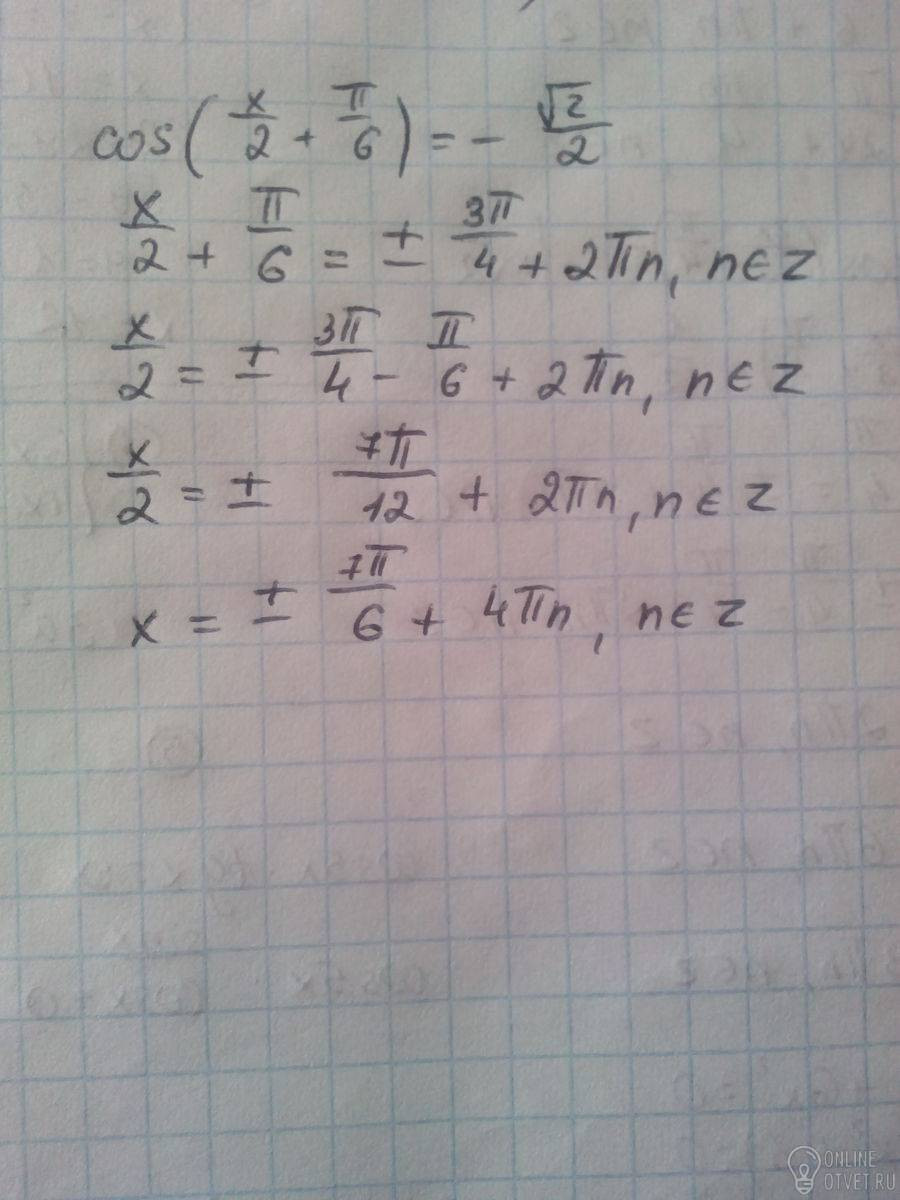 cos(x/2 + π/6) = - √2/2
x/2 + π/6 = ± 3π/4 + 2πn, n∈z
x/2 = ± 3π/4 - π/6 + 2πn, n∈z
x/2 = ± 7π/12 + 2πn, n∈z
x = ± 7π/6 + 4πn, n∈z
ONLINE
OTVET.RU